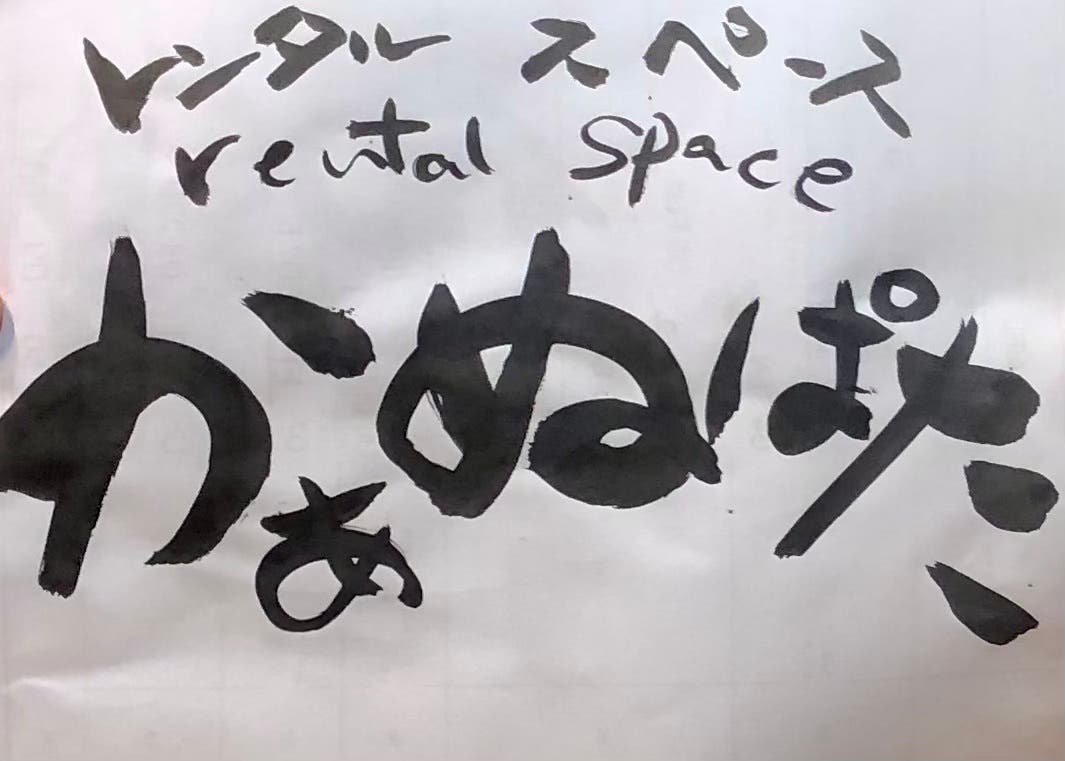 レンタルスペース
rental space
かぁぬぱた